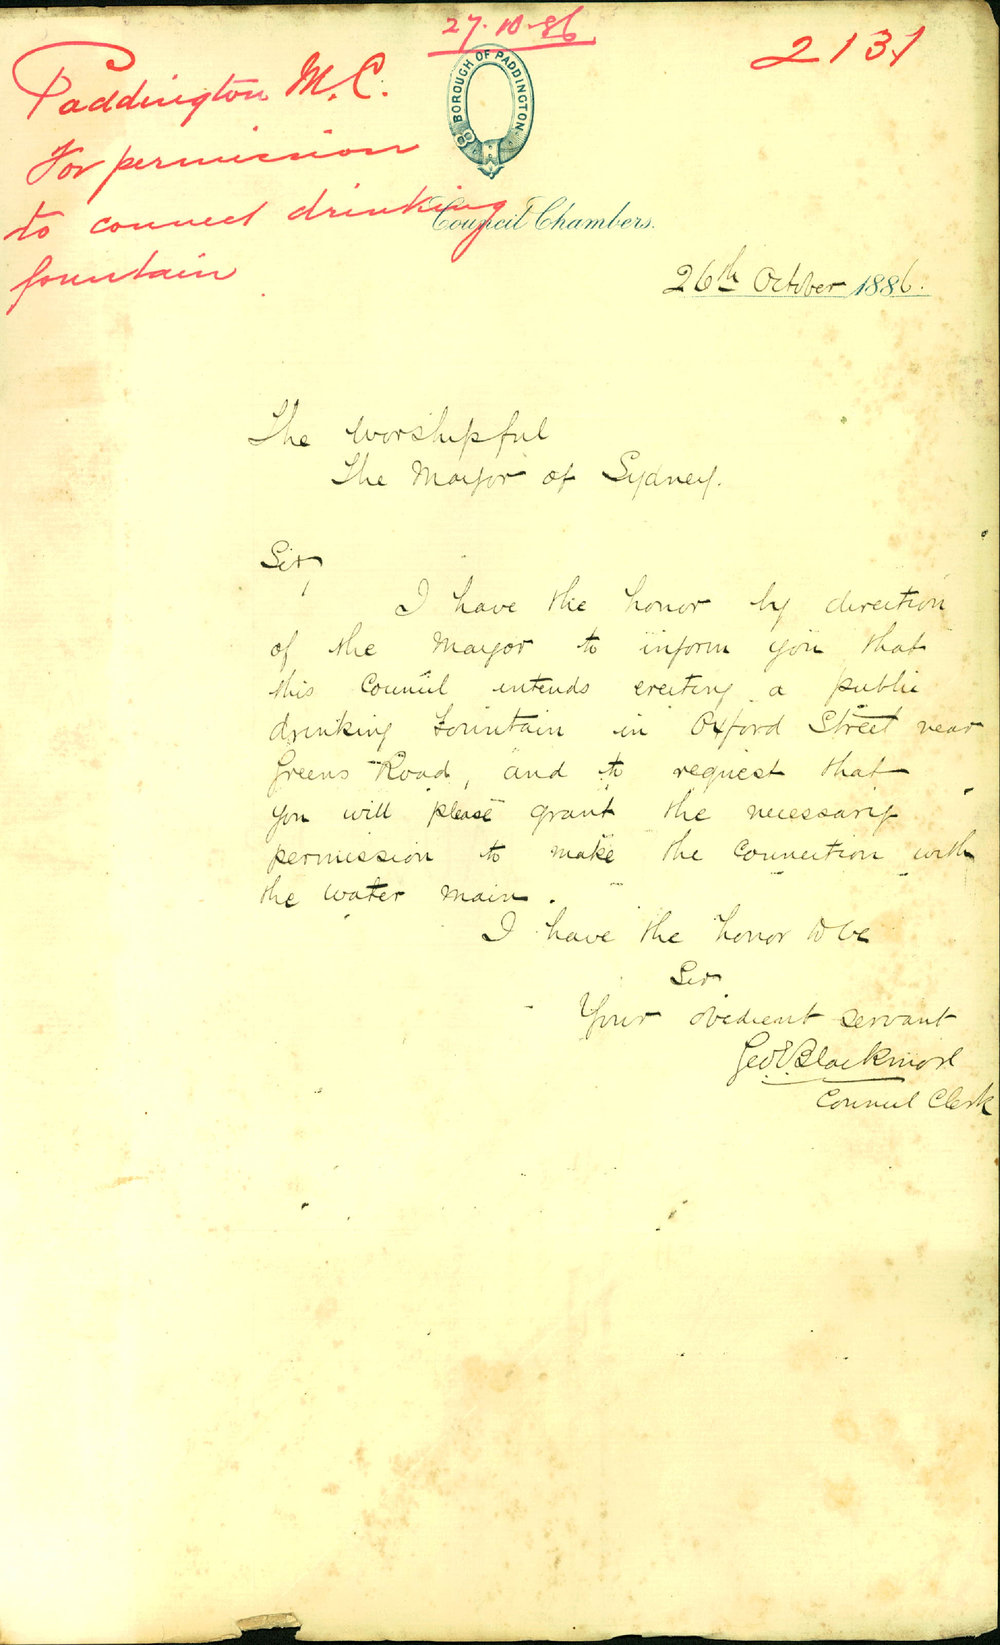 27.10.86
2131
Paddington M.C.
For permission
to connect drinking
fountain
BOROUGH OF PADDINGTON
Council Chambers.
26th October 1886.
The Worshipful
The Mayor of Sydney.
Sir,
I have the honor by direction
of the Mayor to inform you that
this Council intends erecting a public
drinking Fountain in Oxford Street near
Greens Road, and to request that
you will please grant the necessary
permission to make the connection with
the water main.
I have the honor to be
Sir
Your obedient servant
Geo E. Blackmore
Council Clerk